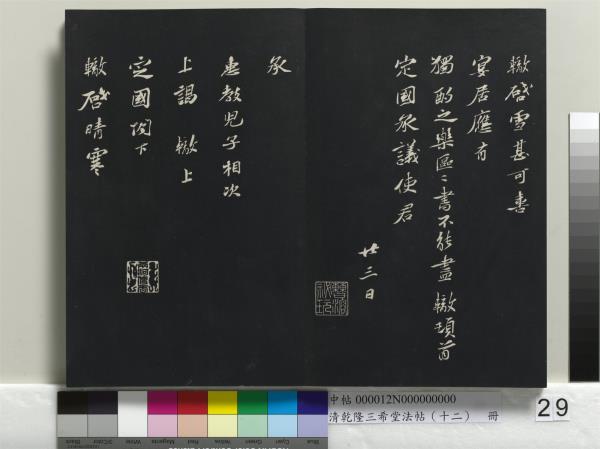 轍啓雪甚可喜
宴居應有
獨酌之樂區區書不能盡轍頓首
定國承議使君
廿三日
承
惠教兒子相次
上謁轍上
定國閣下
轍啓晴寒
中帖 000012N000000000
清乾隆三希堂法帖(十二) 冊
29